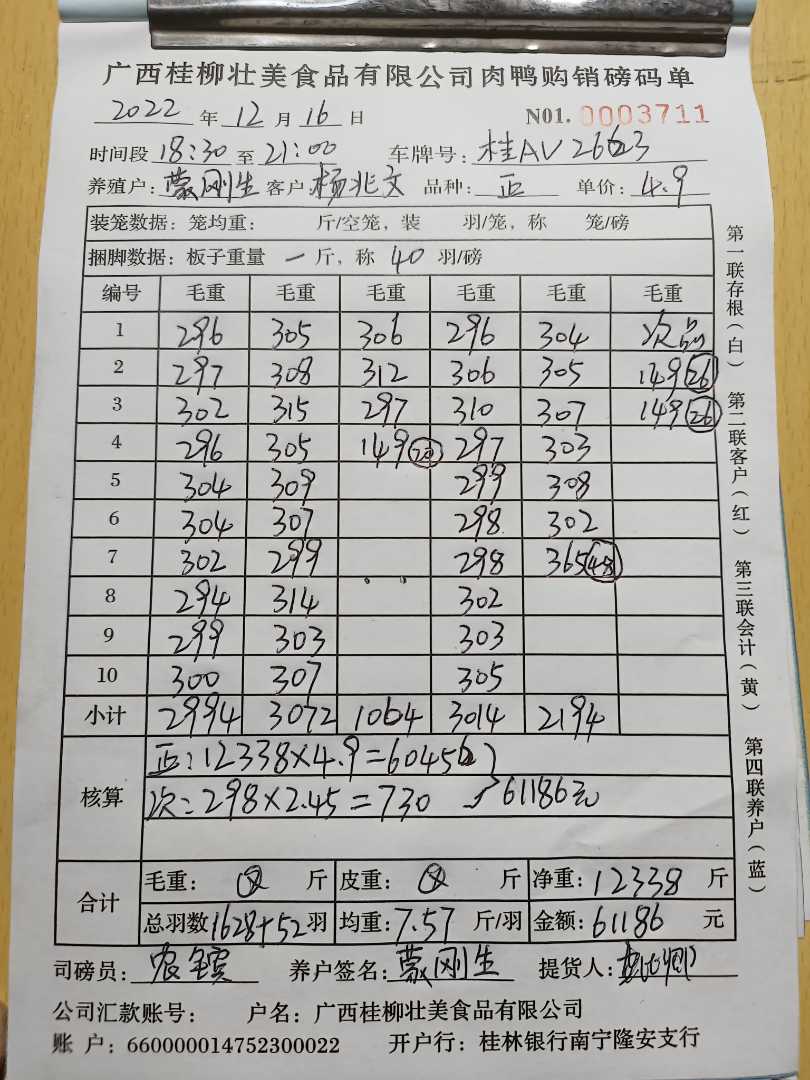 广西桂柳壮美食品有限公司肉鸭购销磅码单
2022 年 12 月 16 日 N01. 0003711
时间段 18:30 至 21:00 车牌号: 桂AV2663
养殖户: 蒙刚生 客户 杨兆文 品种: 正 单价: 4.9
装笼数据: 笼均重: 斤/空笼, 装 羽/笼, 称 笼/磅
捆脚数据: 板子重量 一 斤, 称 40 羽/磅
编号 毛重 毛重 毛重 毛重 毛重 毛重
1 296 305 306 296 304 次品
2 297 308 312 306 305 149 26
3 302 315 297 310 307 149 26
4 296 305 149 20 297 303
5 304 309 299 308
6 304 307 298 302
7 302 299 298 365 48
8 294 314 302
9 299 303 303
10 300 307 305
小计 2994 3072 1064 3014 2194
核算 正:12338×4.9=60456
次:298×2.45=730 61186元
合计 毛重: 斤 皮重: 斤 净重: 12338 斤
总羽数 1628+52 羽 均重: 7.57 斤/羽 金额: 61186 元
司磅员: 养户签名: 蒙刚生 提货人:
公司汇款账号: 户名: 广西桂柳壮美食品有限公司
账 户: 660000014752300022 开户行: 桂林银行南宁隆安支行
第一联存根(白) 第二联客户(红) 第三联会计(黄) 第四联养户(蓝)